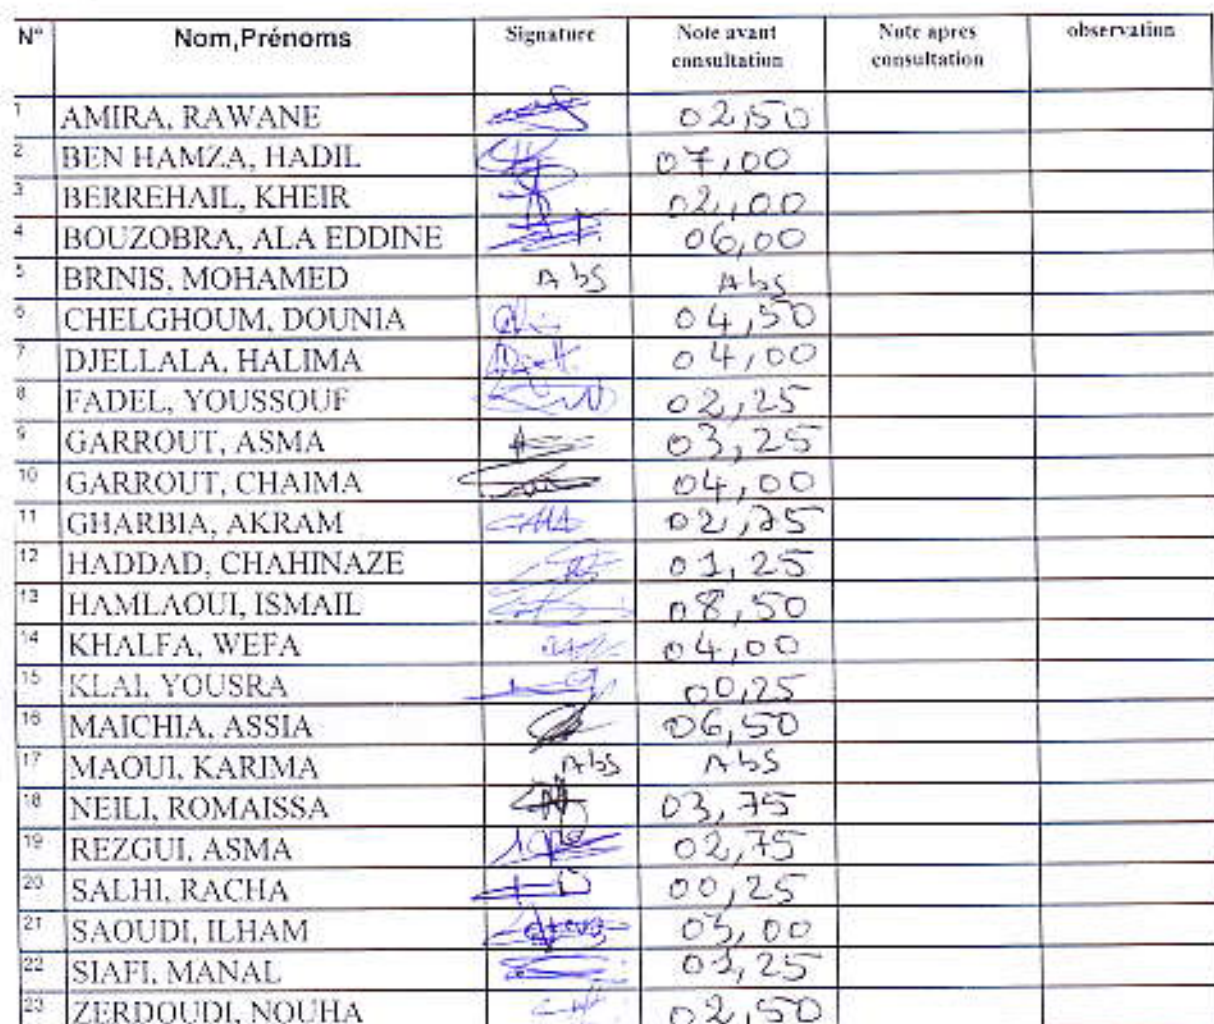 N° Nom,Prénoms Signature Note avant consultation Note apres consultation observation
1 AMIRA, RAWANE 02,50
2 BEN HAMZA, HADIL 07,00
3 BERREHAIL, KHEIR 02,00
4 BOUZOBRA, ALA EDDINE 06,00
5 BRINIS, MOHAMED Abs Abs
6 CHELGHOUM, DOUNIA 04,50
7 DJELLALA, HALIMA 04,00
8 FADEL, YOUSSOUF 02,25
9 GARROUT, ASMA 03,25
10 GARROUT, CHAIMA 04,00
11 GHARBIA, AKRAM 02,75
12 HADDAD, CHAHINAZE 01,25
13 HAMLAOUI, ISMAIL 08,50
14 KHALFA, WEFA 04,00
15 KLAI, YOUSRA 00,25
16 MAICHIA, ASSIA 06,50
17 MAOUI, KARIMA Abs Abs
18 NEILI, ROMAISSA 03,75
19 REZGUI, ASMA 02,75
20 SALHI, RACHA 00,25
21 SAOUDI, ILHAM
22 SIAFI, MANAL
23 ZERDOUDI, NOUHA 02,50